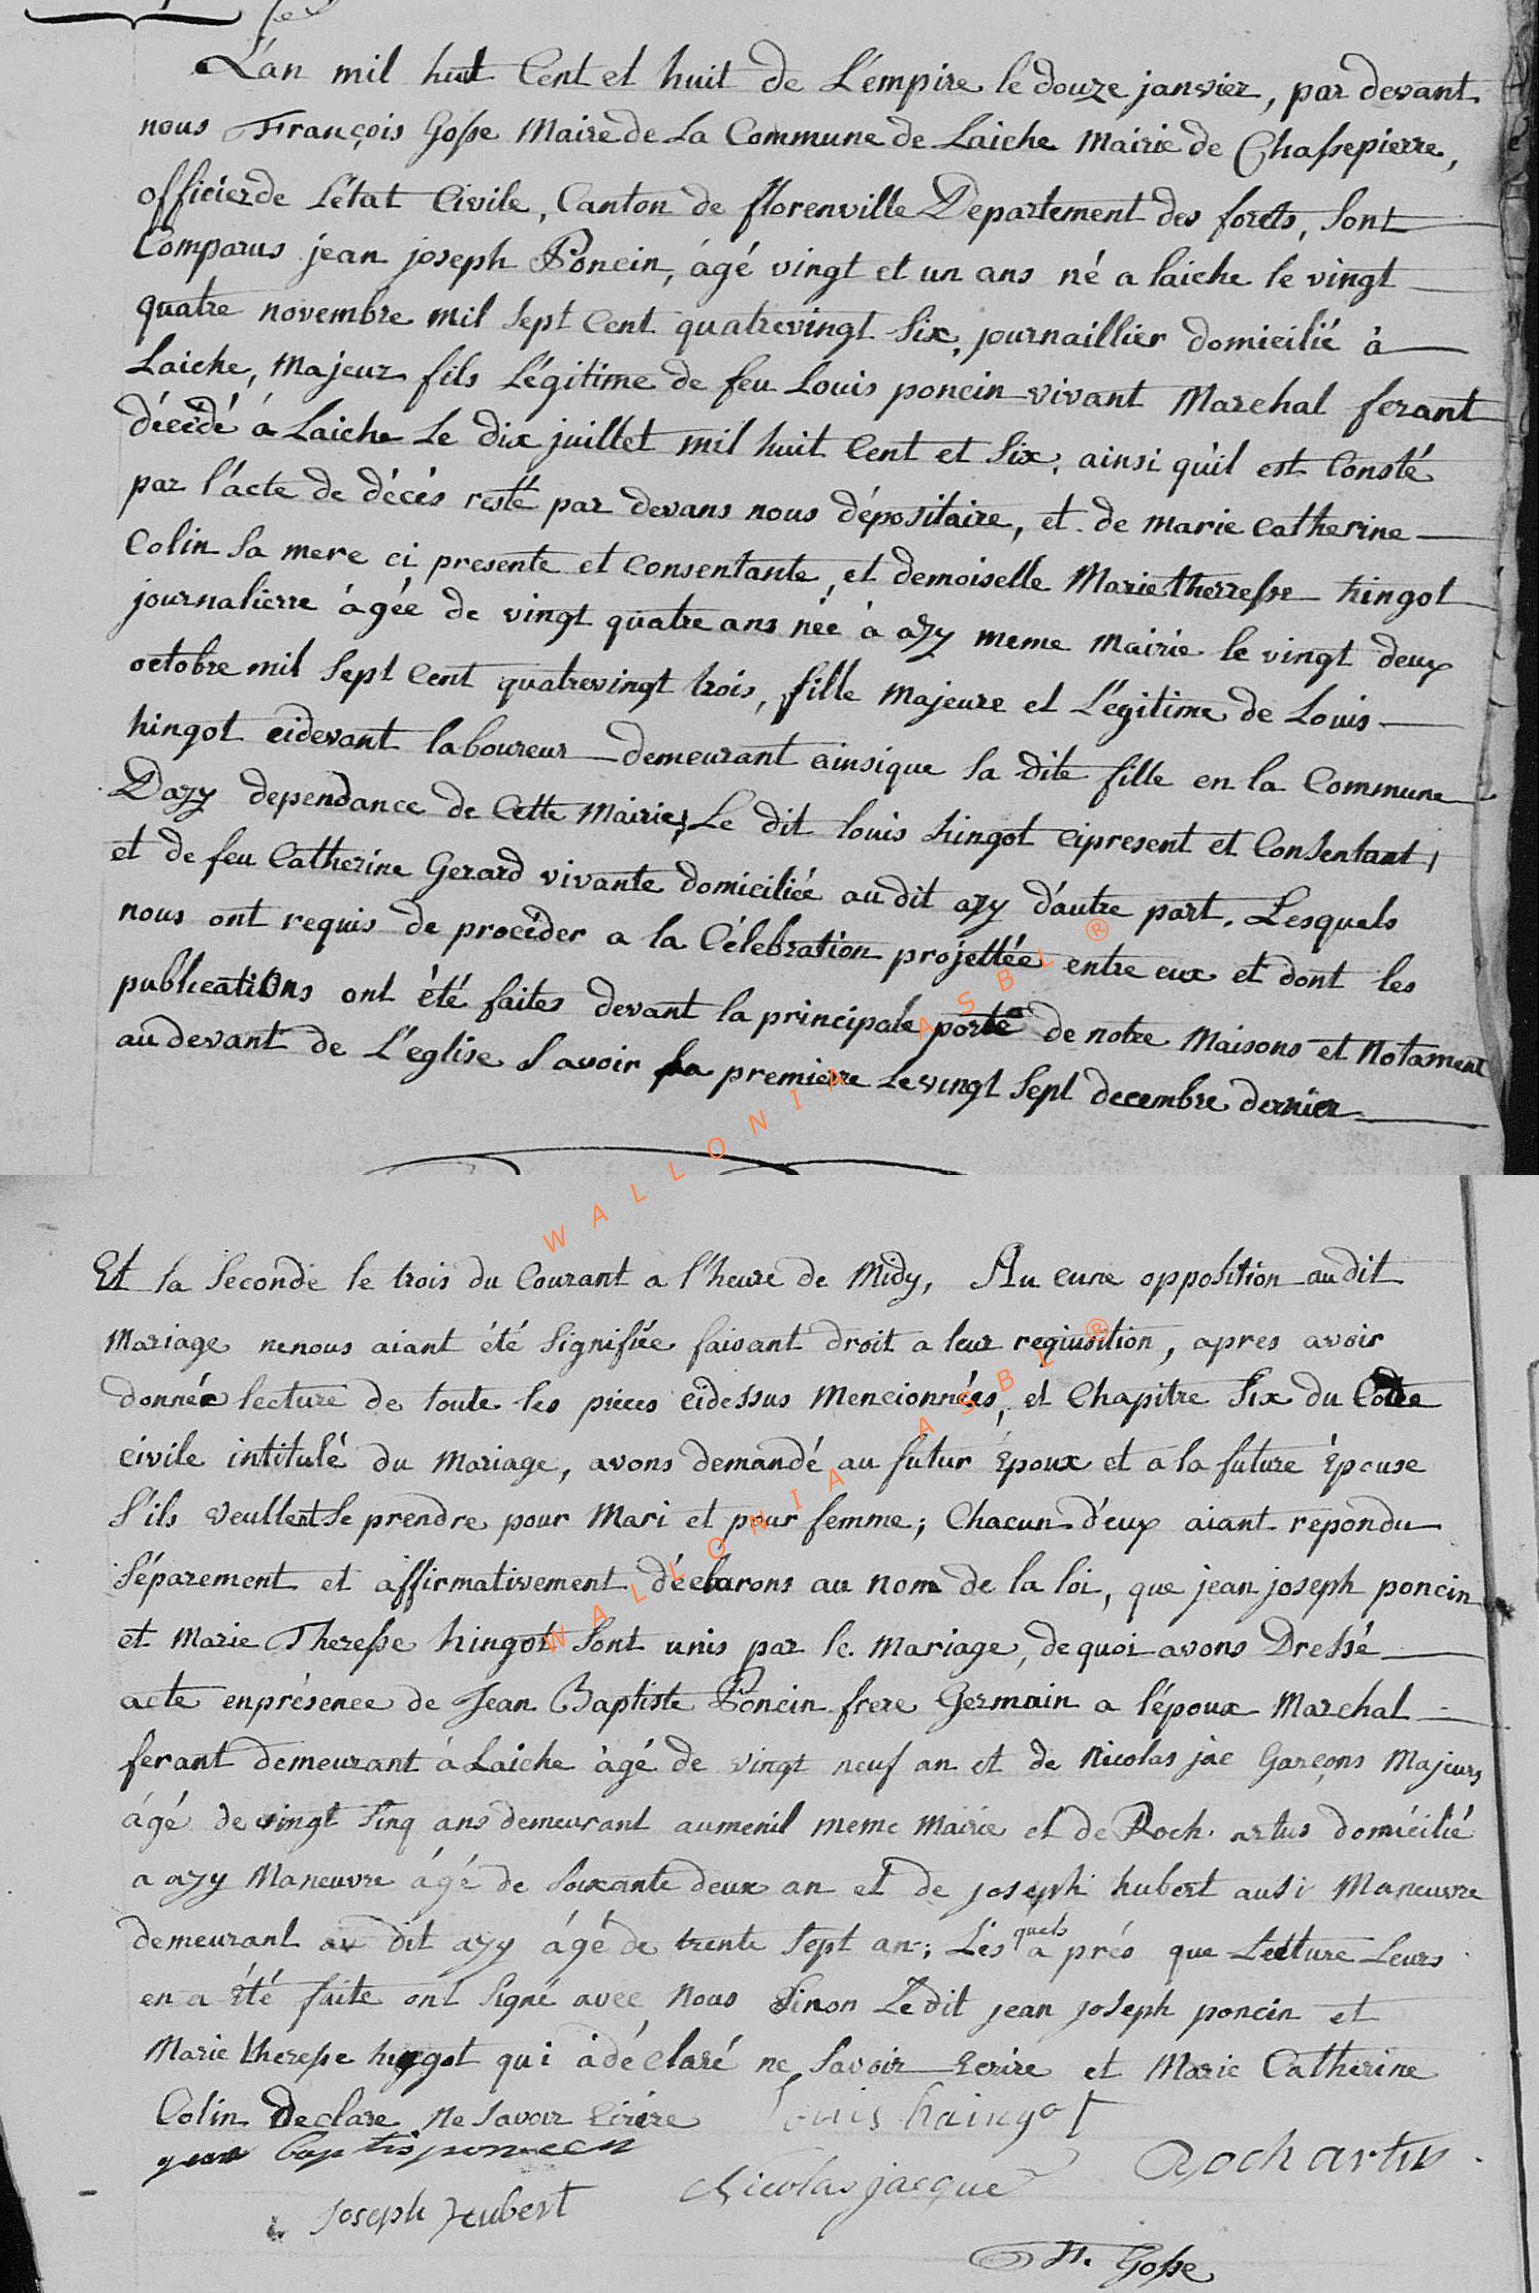 L'an mil huit Cent et huit de L'émpire le douze janvier, par devant
nous François Gosse Maire de La Commune de Laiche Mairie de Chassepierre,
officier de L'état Civile, Canton de florenville Departement des forets, Sont
Comparus jean joseph Poncin, âgé vingt et un ans né a laiche le vingt
quatre novembre mil Sept Cent quatrevingt Six, journaillier domicilié à
Laiche, Majeur fils Légitime de feu Louis poncin vivant Marchal ferant
décédé á Laiche Le dix juillet mil huit Cent et Six, ainsi qu'il est Consté
par l'ácte de décés resté par devans nous dépositaire, et de marie catherine
Colin Sa mere ci presente et consentante, et demoiselle Marie therresse hingot
journalierre âgée de vingt quatre ans née à azy meme Mairie le vingt deux
octobre mil Sept Cent quatrevingt trois, fille Majeure et Légitime de Louis
hingot cidevant laboureur demeurant ainsique Sa dite fille en la Commune
Dazy dependance de Cette Mairie, Le dit louis hingot cipresent et Consentant,
et de feu Catherine Gerard vivante domiciliée audit azy d'autre part. Lesquels
nous ont requis de procéder a la Célebration projettée entre eux et dont les
publications ont été faites devant la principale porte de notre Maisons et Notament
audevant de L'eglise Savoir La premierre Le vingt Sept decembre dernier
Et la Seconde le trois du Courant a l'heure de Midy, Aucune opposition audit
Mariage nenous aiant été Signifiée faisant droit a leur regiusition, apres avoir
donnée lecture de toute les pieces cidessus Mencionnées, et Chapitre Six du Code
civile intitulé du Mariage, avons demandé au futur Epoux et a la future Épouse
S'ils veullent Se prendre pour Mari et pour femme; Chacun d'eux aiant repondu
Séparement et affirmativement déclarons au nom de la loi, que jean joseph poncin
et Marie Theresse hingot Sont unis par le Mariage, de quoi avons Dressé
acte enprésence de Jean Baptiste Poncin frere Germain a l'époux Marchal
ferant demeurant á Laiche àgé de vingt neuf an et de Nicolas jac Garçons Majeurs
ágé de vingt Sinq ans demeurant aumenil meme Mairie et de Roch artus domicilié
a azy Maneuvre ágé de Soixante deux an et de joseph hubert ausi Maneuvre
demeurant au dit azy ágé de trente Sept an; Lesquels aprés que Lecture Leurs
en a été faite ont Signé avec Nous Sinon Ledit jean joseph poncin et
Marie therese hingot qui à déclaré ne Savoir Ecrire et Marie Catherine
Colin Declare Ne Savoir Ecrire Louis haingot
jean baptis poncin Roch artus
Nicolas jacque
Joseph Hubert
F. Gosse
WALLONIA ASBL ®
WALLONIA ASBL ®